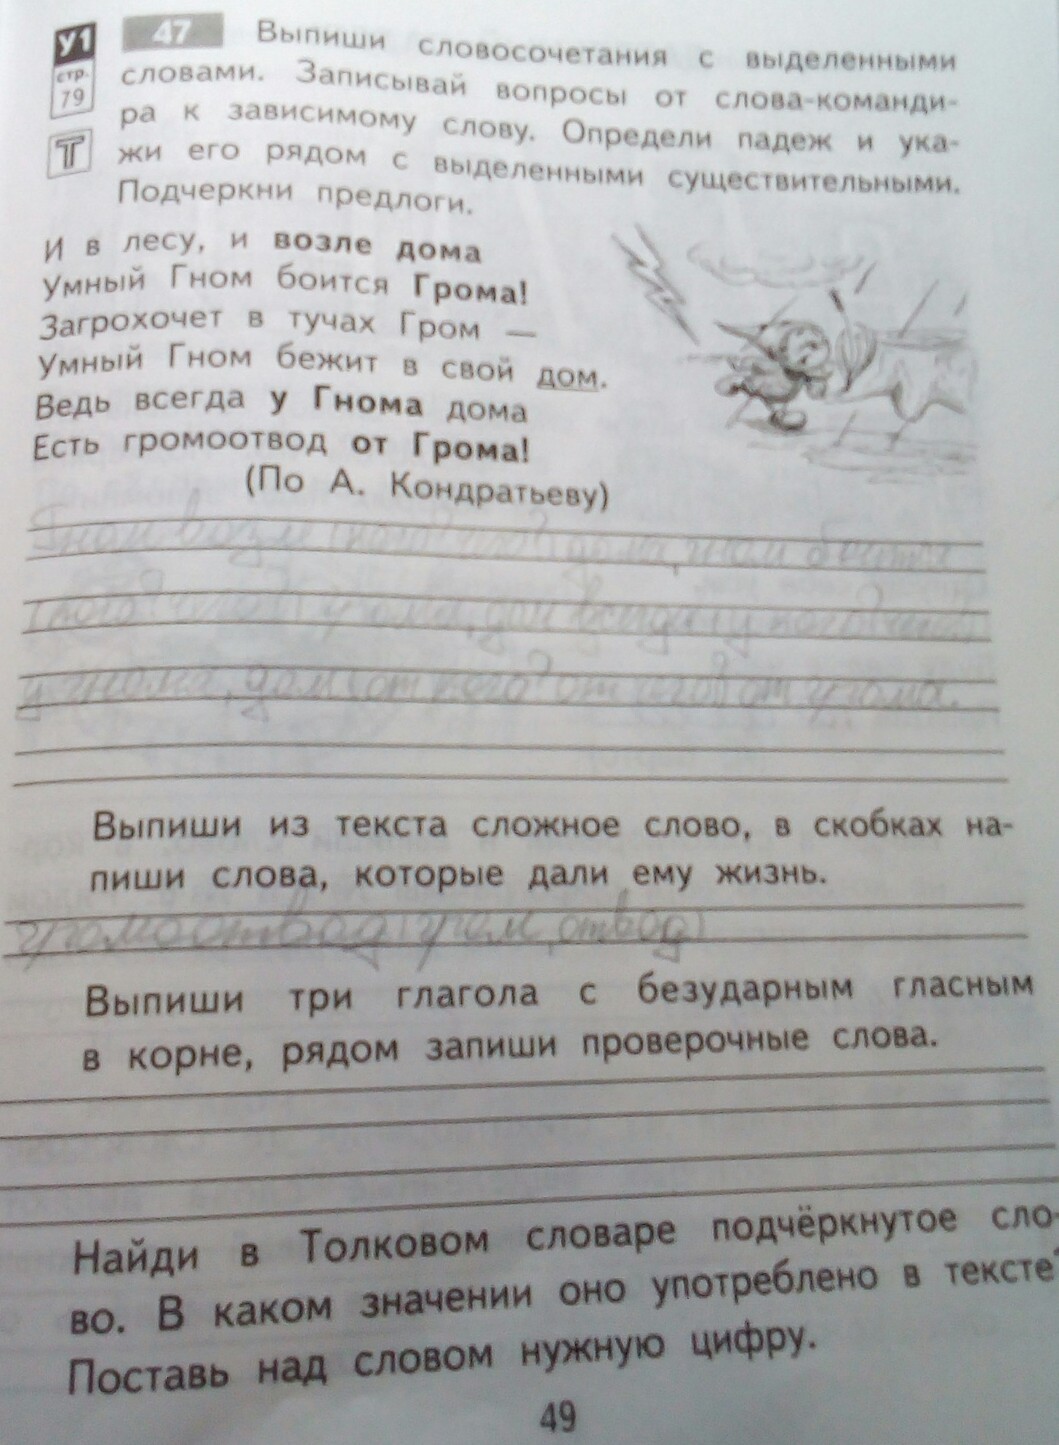 У1 47 Выпиши словосочетания с выделенными
стр. словами. Записывай вопросы от слова-команди-
79 ра к зависимому слову. Определи падеж и ука-
Т жи его рядом с выделенными существительными.
Подчеркни предлоги.
И в лесу, и возле дома
Умный Гном боится Грома!
Загрохочет в тучах Гром —
Умный Гном бежит в свой дом.
Ведь всегда у Гнома дома
Есть громоотвод от Грома!
(По А. Кондратьеву)
Гном возле (кого? чего?) дома, гном боится
(кого? чего?) грома, дом всегда (у кого?
у гнома, дом (от кого? от чего?) от грома.
Выпиши из текста сложное слово, в скобках на-
пиши слова, которые дали ему жизнь.
громоотвод (гром, отвод)
Выпиши три глагола с безударным гласным
в корне, рядом запиши проверочные слова.
Найди в Толковом словаре подчёркнутое сло-
во. В каком значении оно употреблено в тексте?
Поставь над словом нужную цифру.
49